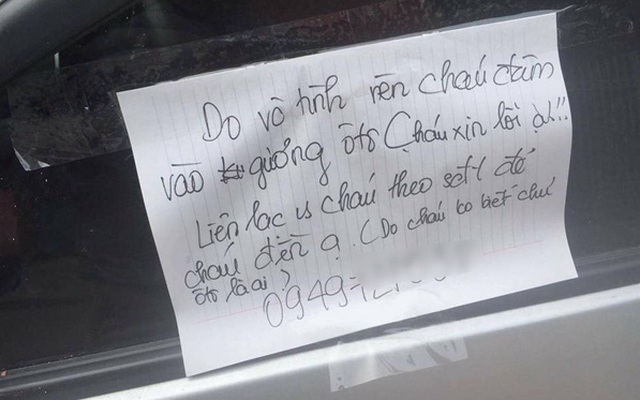 Do vô tình nên cháu đâm
vào gương ôtô (cháu xin lỗi ạ!!
Liên lạc vs cháu theo số đt để
cháu đền ạ. (Do cháu ko biết chủ
ôtô là ai?
0949